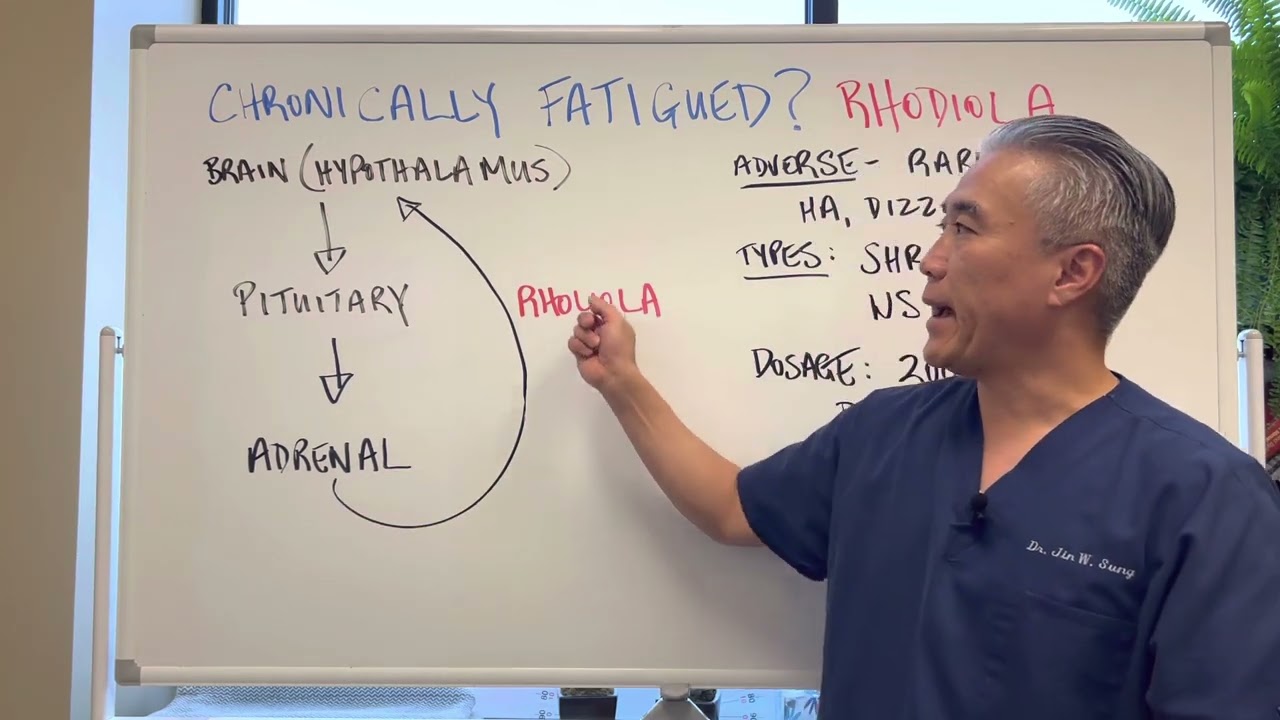 CHRONICALLY FATIGUED? RHODIOLA
BRAIN (HYPOTHALAMUS)
PITUITARY
ADRENAL
RHODIOLA
ADVERSE -
HA,
TYPES:
DOSAGE:
Dr. Jin W. Sung